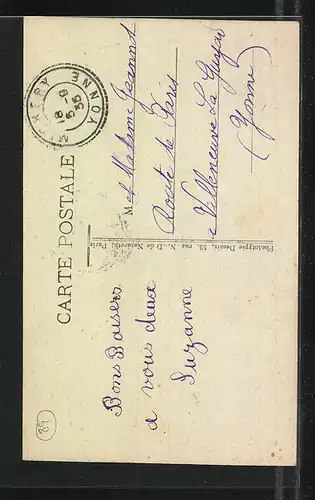 CARTE POSTALE
18-8
35
YONNE
M et Madame Jeannot
Route de Paris
a Villeneuve La Guyard
(Yonne)
Phototypie Desaix, 53, rue N.-D de Nazareth, Paris
Bons Baisers
a vous deux
Suzanne
89